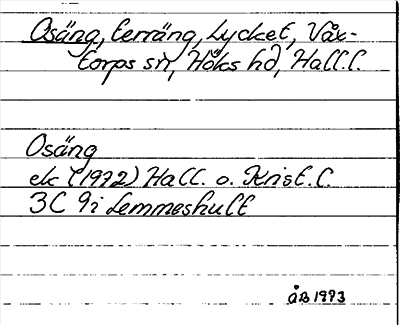 Osäng, terräng, Lycket, Våx-
torps sn, Höks hd, Hall. l.
Osäng
ek (1972) Hall. o. Krist. l.
3C 9i Lemmeshult
ÅB 1973